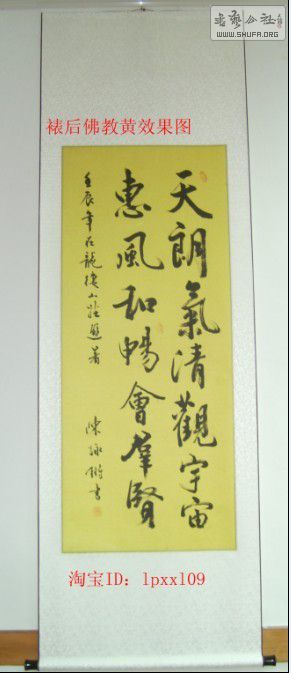 書藝公社
WWW.SHUFA.ORG
裱后佛教黄效果图
天朗氣清觀宇宙
惠風和暢會羣賢
壬辰年 龍樓山莊 暑
陳 書
淘宝ID：lpxxl09